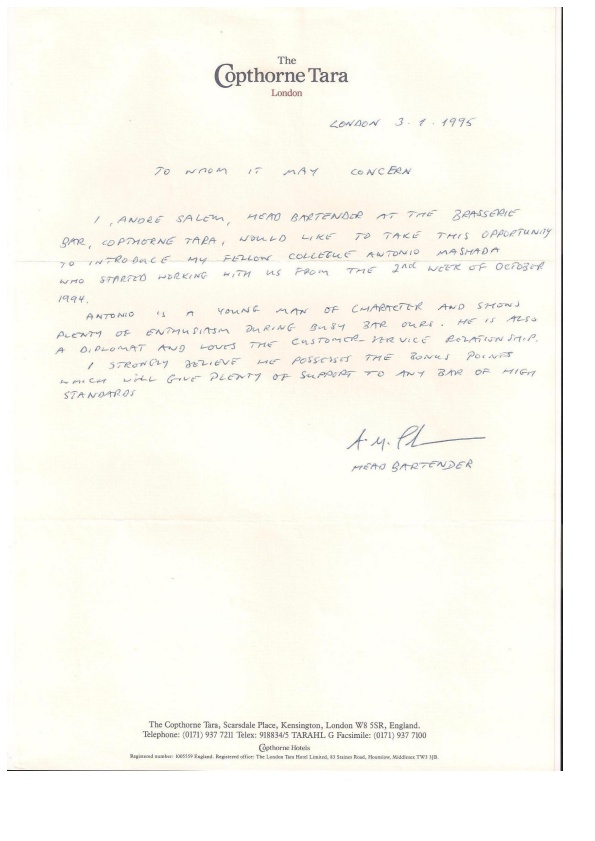 The
Copthorne Tara
London
LONDON 3.1.1995
TO WHOM IT MAY CONCERN
I, ANDRE SALEM, HEAD BARTENDER AT THE BRASSERIE
BAR, COPTHORNE TARA, WOULD LIKE TO TAKE THIS OPPORTUNITY
TO INTRODUCE MY FELLOW COLLEGUE ANTONIO MASHADA
WHO STARTED WORKING WITH US FROM THE 2nd WEEK OF OCTOBER
1994.
ANTONIO IS A YOUNG MAN OF CHARACTER AND SHOWS
PLENTY OF ENTHUSIASM DURING BUSY BAR OURS. HE IS ALSO
A DIPLOMAT AND LOVES THE CUSTOMER-SERVICE RELATIONSHIP.
I STRONGLY BELIEVE HE POSSESSES THE BONUS POINTS
WHICH WILL GIVE PLENTY OF SUPPORT TO ANY BAR OF HIGH
STANDARDS
HEAD BARTENDER
The Copthorne Tara, Scarsdale Place, Kensington, London W8 5SR, England.
Telephone: (0171) 937 7211 Telex: 918834/5 TARAHL G Facsimile: (0171) 937 7100
Copthorne Hotels
Registered number: 1005559 England. Registered office: The London Tara Hotel Limited, 83 Station Road, Hounslow, Middlesex TW3